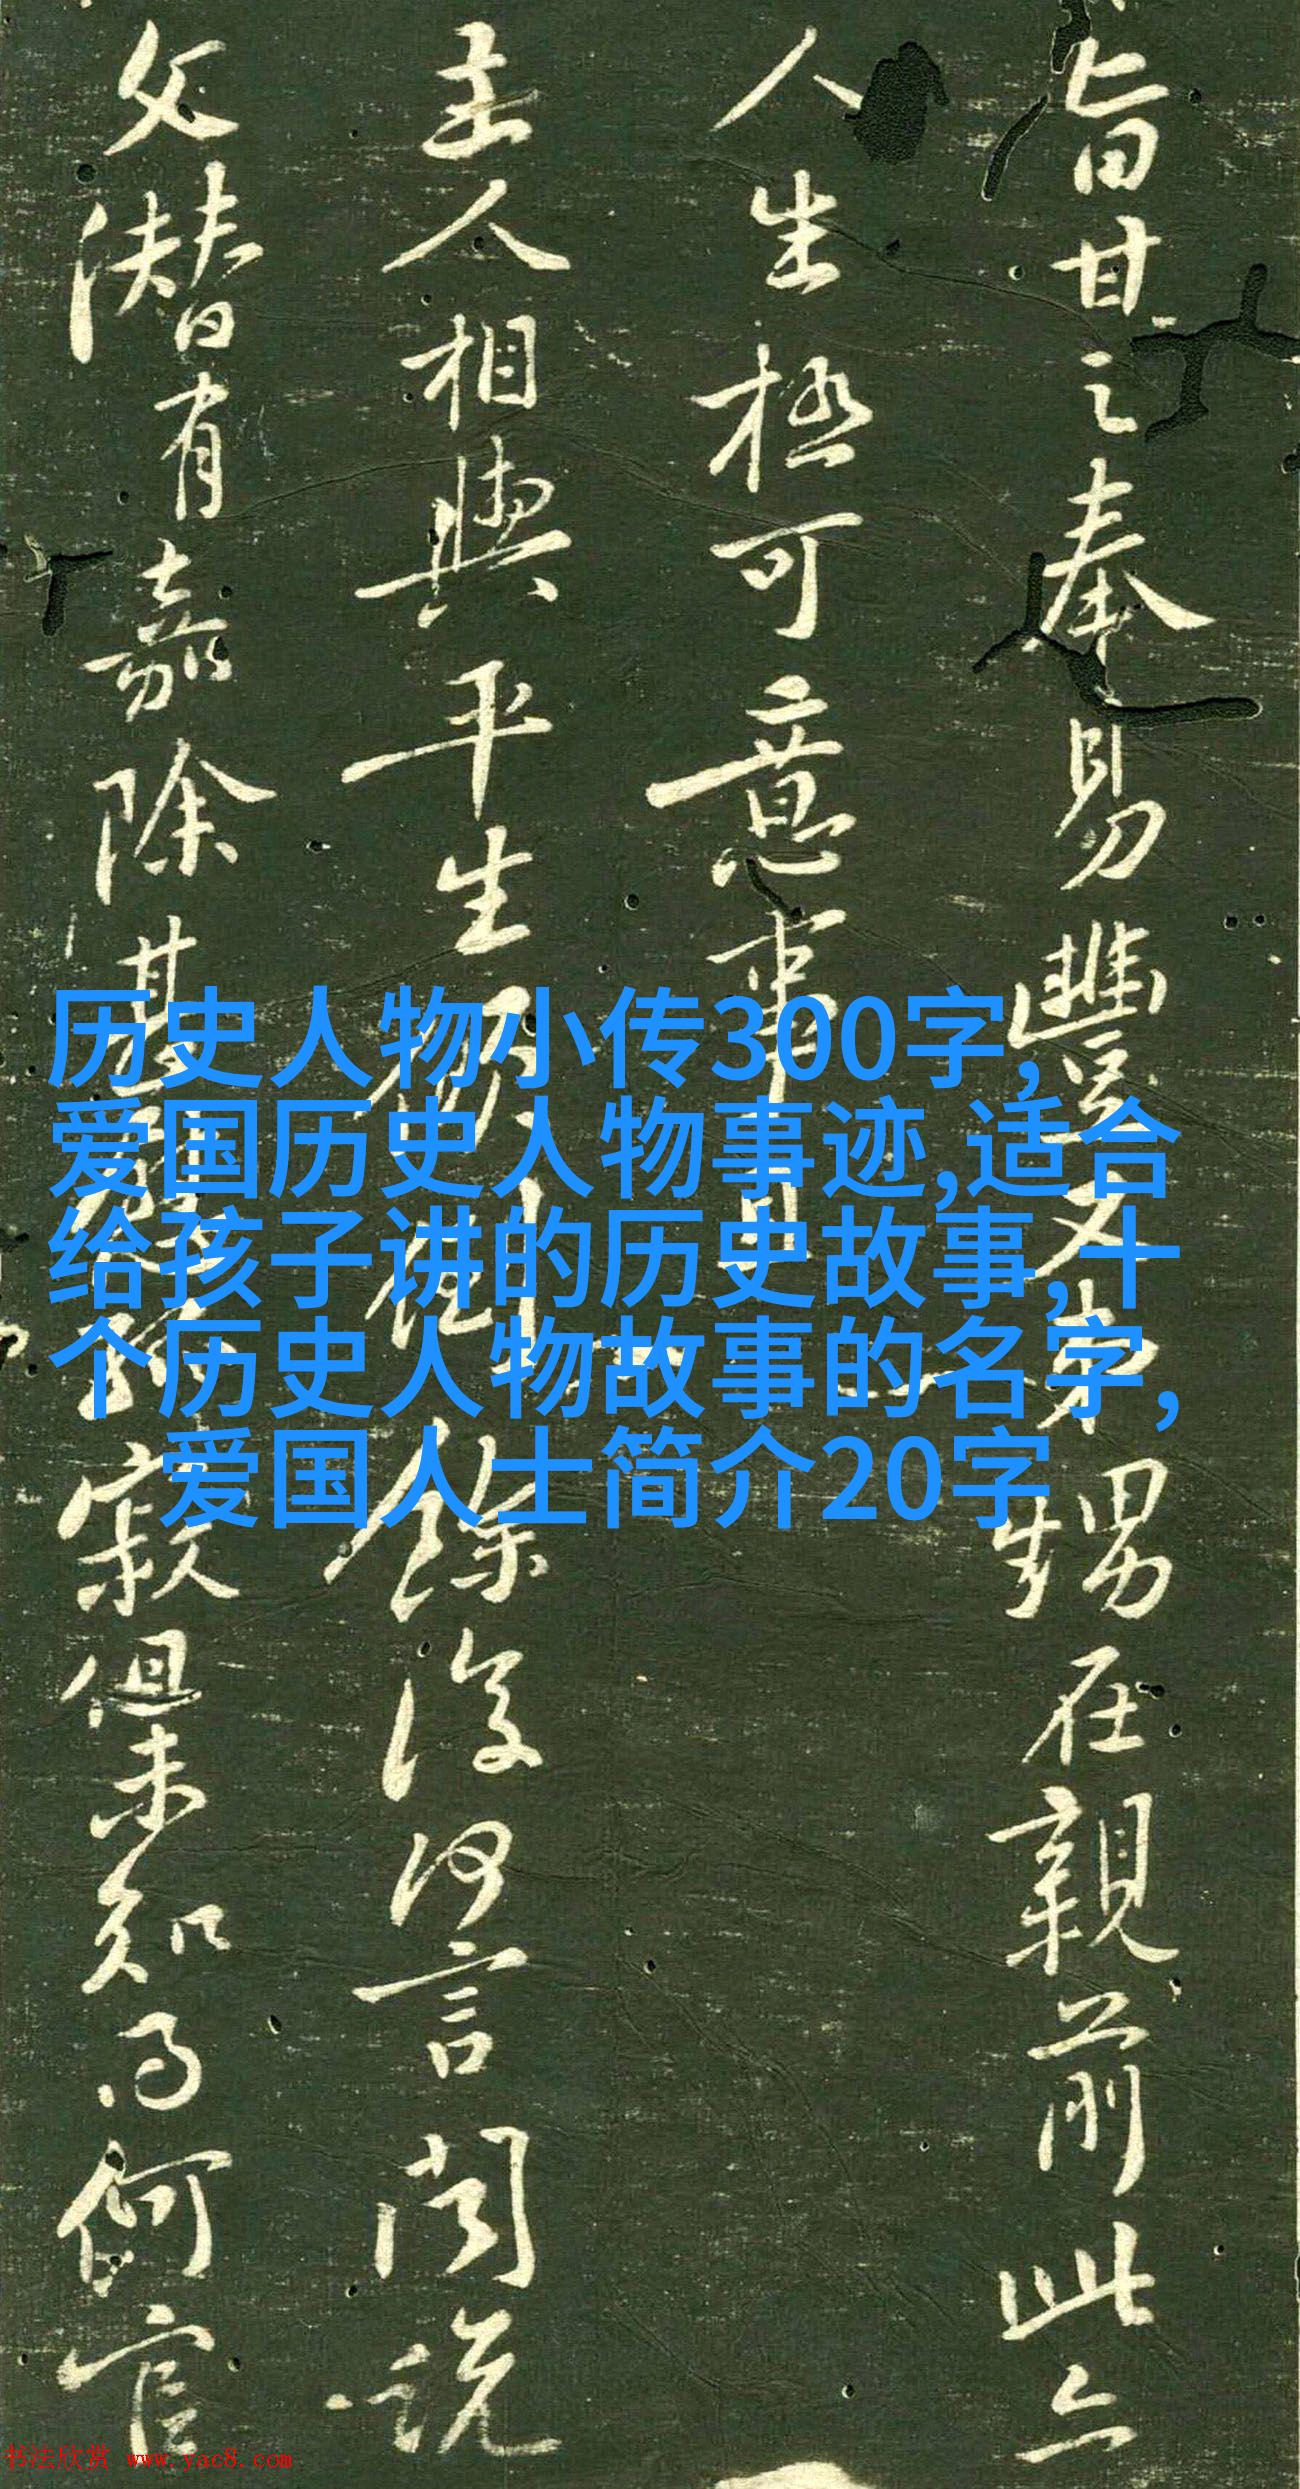 旨甘之奉易豐又弟甥在親前此亦
人生極可意事耳
主人相與平生
餘復何言聞說
父潛有嘉除甚
寂但未知為何官
历史人物小传300字,
爱国历史人物事迹,适合
给孩子讲的历史故事,十
个历史人物故事的名字,
爱国人士简介20字
书法欣赏 www.yac8.com